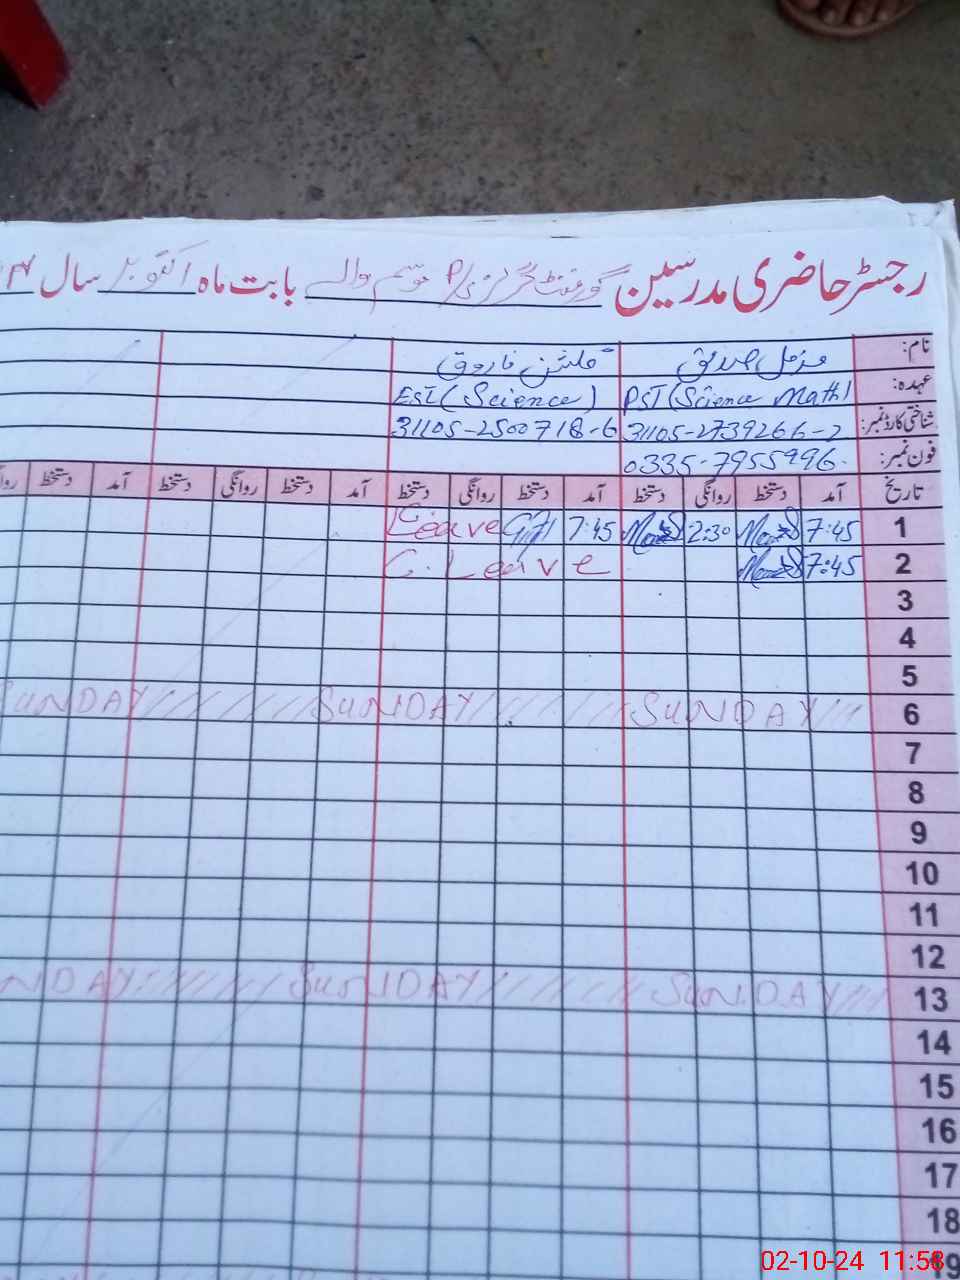 رجسٹر حاضری مدرسین گورنمنٹ گرلز P/S موسم والے بابت ماہ اکتوبر سال
نام: مزمل صدیق گلشن فاروق
عہدہ: PST (Science Math) EST (Science)
شناختی کارڈ نمبر: 31105-2739266-2 31105-2500718-6
فون نمبر: 0335-7955996.
تاریخ آمد دستخط روانگی دستخط آمد دستخط روانگی دستخط آمد دستخط روانگی دستخط آمد دستخط
1 7:45 2:30 7:45 Leave
2 7:45 C. Leave
3
4
5
6 SUNDAY SUNDAY SUNDAY
7
8
9
10
11
12
13 SUNDAY SUNDAY NDAY
14
15
16
17
18
19
02-10-24 11:58